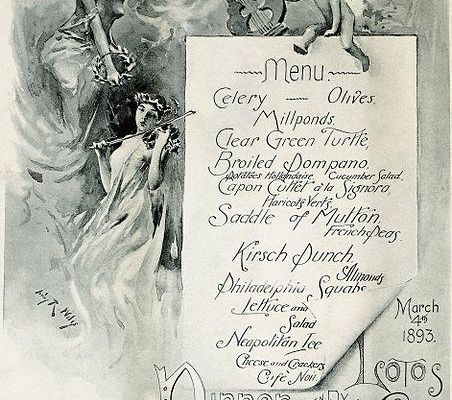 Menu
Celery — Olives.
Millponds.
Clear Green Turtle,
Broiled Pompano,
Potatoes Hollandaise, Cucumber Salad.
Capon Cutlet à la Signora,
Haricots Verts,
Saddle of Mutton,
French Peas.
Kirsch Punch,
Almonds
Philadelphia Squabs
Lettuce and
Salad
Neapolitan Ice
Cheese and Crackers
Café Noir.
March
4th
1893.
Lotos
Dinner